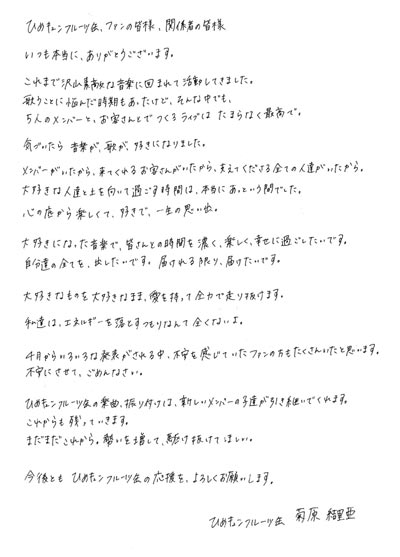 ひめキュンフルーツ缶、ファンの皆様、関係者の皆様
いつも本当に、ありがとうございます。
これまで沢山素敵な音楽に囲まれて活動してきました。
歌うことに悩んだ時期もあったけど、そんな中でも、
5人のメンバーと、お客さんとでつくるライブは たまらなく最高で。
気づいたら 音楽が、歌が、好きになりました。
メンバーがいたから、来てくれるお客さんがいたから、支えてくださる全ての人達がいたから。
大好きな人達と上を向いて過ごす時間は、本当にあっという間でした。
心の底から楽しくて、好きで、一生の思い出。
大好きになった音楽で、皆さんとの時間を濃く、楽しく、幸せに過ごしたいです。
自分達の全てを、出したいです。届けれる限り、届けたいです。
大好きなものを大好きなまま、愛を持って全力で走り抜けます。
私達は、エネルギーを落とすつもりなんて全くないよ。
4月からいろいろな発表がされる中、不安を感じていたファンの方もたくさんいたと思います。
不安にさせて、ごめんなさい。
ひめキュンフルーツ缶の楽曲、振り付けは、新しいメンバーの子達が引き継いでくれます。
これからも残っていきます。
まだまだこれから。勢いを増して、駆け抜けてほしい。
今後とも ひめキュンフルーツ缶の応援を、よろしくお願いします。
ひめキュンフルーツ缶 菊原 結里亜